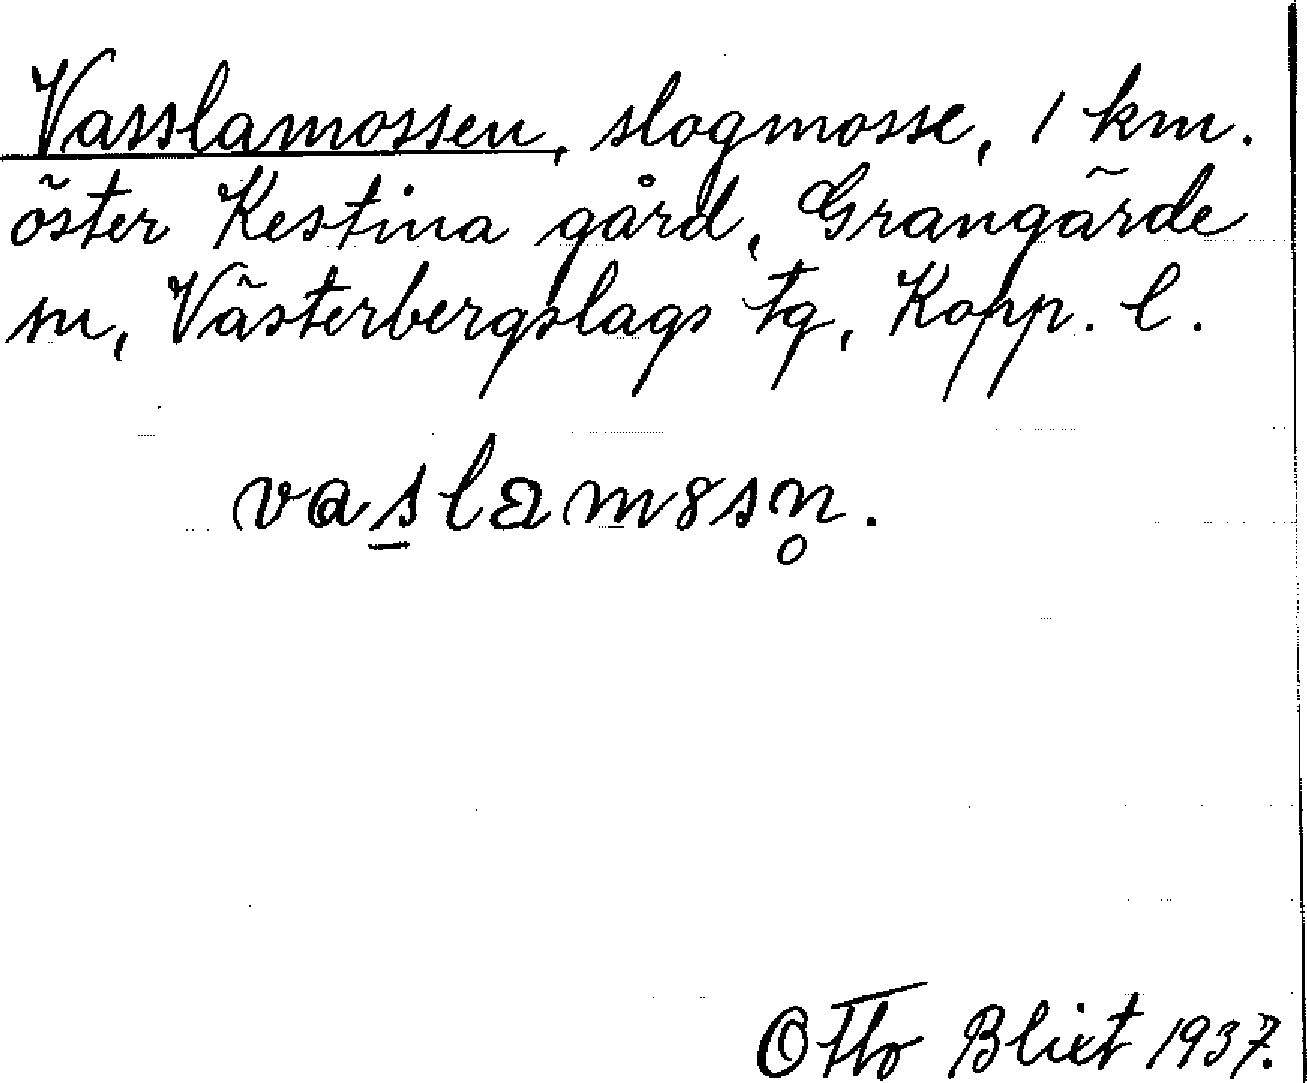 Vasslamossen, slogmosse, 1 km.
öster Kestina gård, Grangärde
sn, Västerbergslags tg, Kopp. l.
vas̲lam8sn̥.
Otto Blixt 1937.